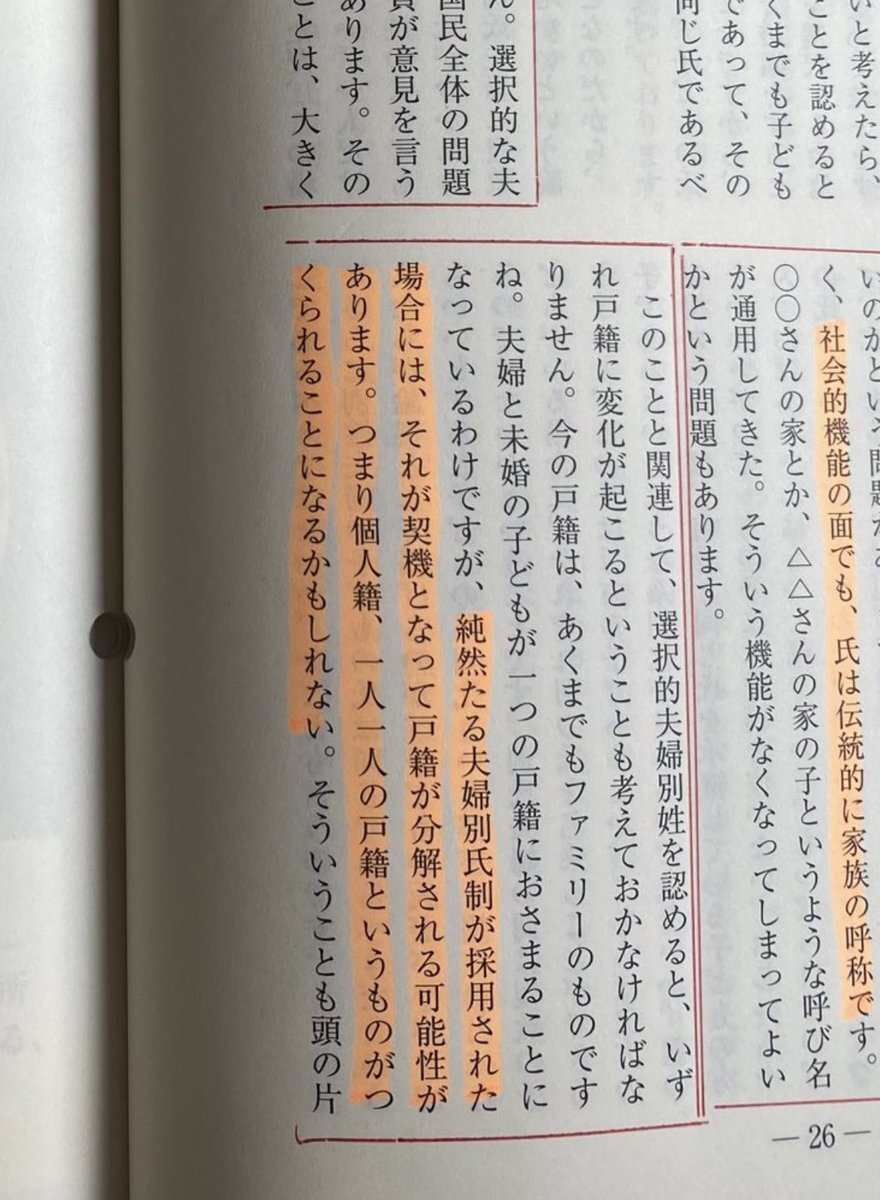 いと考えたら、
ことを認めると
くまでも子ども
であって、その
同じ氏であるべ
ん。選択的な夫
国民全体の問題
員が意見を言う
あります。その
ことは、大きく
いのかという問題
く、社会的機能の面でも、氏は伝統的に家族の呼称です。
〇〇さんの家とか、△△さんの家の子というような呼び名
が通用してきた。そういう機能がなくなってしまってよい
かという問題もあります。
このことと関連して、選択的夫婦別姓を認めると、いず
れ戸籍に変化が起こるということも考えておかなければな
りません。今の戸籍は、あくまでもファミリーのものです
ね。夫婦と未婚の子どもが一つの戸籍におさまることに
なっているわけですが、純然たる夫婦別氏制が採用された
場合には、それが契機となって戸籍が分解される可能性が
あります。つまり個人籍、一人一人の戸籍というものがつ
くられることになるかもしれない。そういうことも頭の片
— 26 —